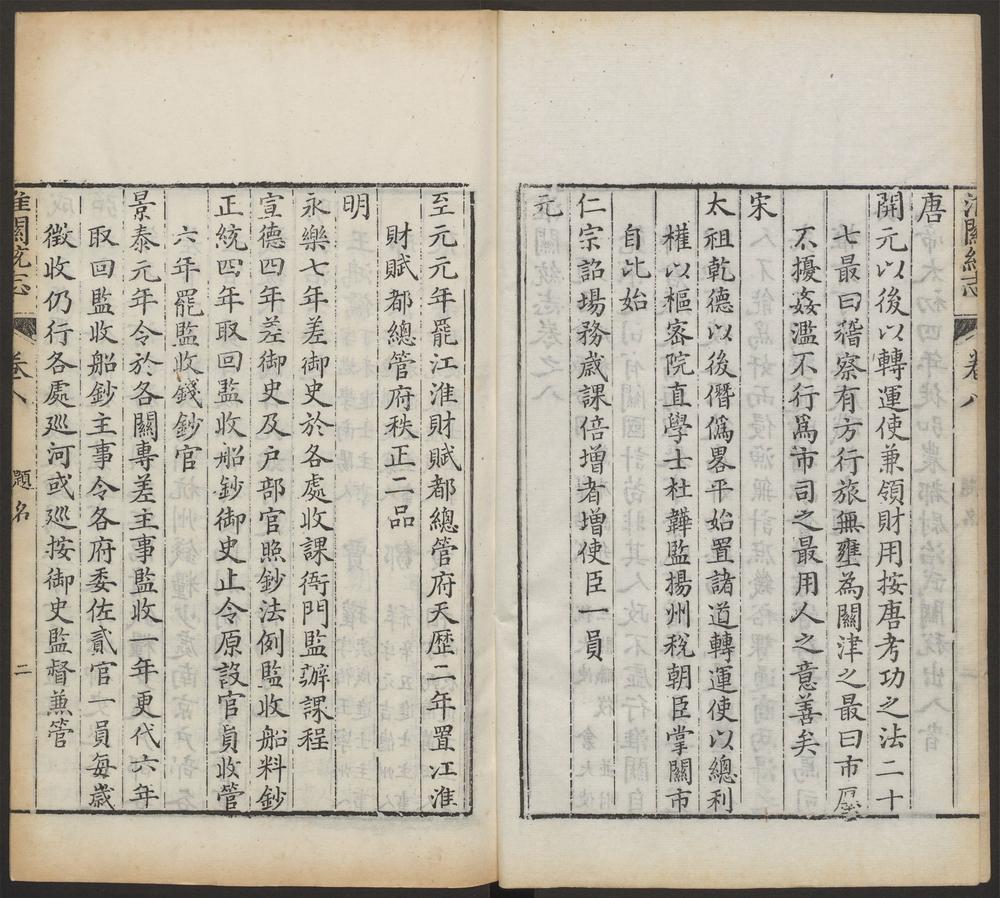 淮關統志
卷八
唐
開元以後以轉運使兼領財用按唐考功之法二十
七最曰稽察有方行旅無壅為關津之最曰市廛
不擾姦濫不行爲市司之最用人之意善矣
宋
太祖乾德以後僭僞畧平始置諸道轉運使以總利
權以樞密院直學士杜韡監揚州稅朝臣掌關市
自此始
仁宗詔場務歲課倍增者增使臣一員
元
至元元年罷江淮財賦都總管府天歷二年置江淮
財賦都總管府秩正二品
明
永樂七年差御史於各處收課衙門監辦課程
宣德四年差御史及戶部官照鈔法例監收船料鈔
正統四年取回監收船鈔御史止令原設官員收管
六年罷監收錢鈔官
景泰元年令於各關專差主事監收一年更代六年
取回監收船鈔主事令各府委佐貳官一員每歲
徵收仍行各處廵河或廵按御史監督兼管
淮關統志
卷八
題名
二